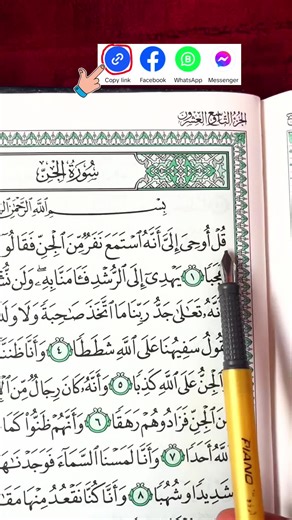 Copy link Facebook WhatsApp Messenger
الجزء التاسع والعشرون
سورة الجن
بسم الله الرحمن
قُلْ أُوحِىَ إِلَىَّ أَنَّهُ ٱسْتَمَعَ نَفَرٌ مِّنَ ٱلْجِنِّ فَقَالُو
عَجَبًا ١ يَهْدِىٓ إِلَى ٱلرُّشْدِ فَـَٔامَنَّا بِهِۦ وَلَن نُّشْ
نَّهُۥ تَعَـٰلَىٰ جَدُّ رَبِّنَا مَا ٱتَّخَذَ صَـٰحِبَةً وَلَا وَلَ
قُولُ سَفِيهُنَا عَلَى ٱللَّهِ شَطَطًا ٤ وَأَنَّا ظَنَنَّ
ٱلْجِنُّ عَلَى ٱللَّهِ كَذِبًا ٥ وَأَنَّهُۥ كَانَ رِجَالٌ مِّنَ ٱلْإِ
نَ ٱلْجِنِّ فَزَادُوهُمْ رَهَقًا ٦ وَأَنَّهُمْ ظَنُّوا۟ كَمَا
ٱللَّهُ أَحَدًا ٧ وَأَنَّا لَمَسْنَا ٱلسَّمَآءَ فَوَجَدْنَـٰهَ
شَدِيدًا وَشُهُبًا ٨ وَأَنَّا كُنَّا نَقْعُدُ مِنْهَا مَقَـ
PIANO